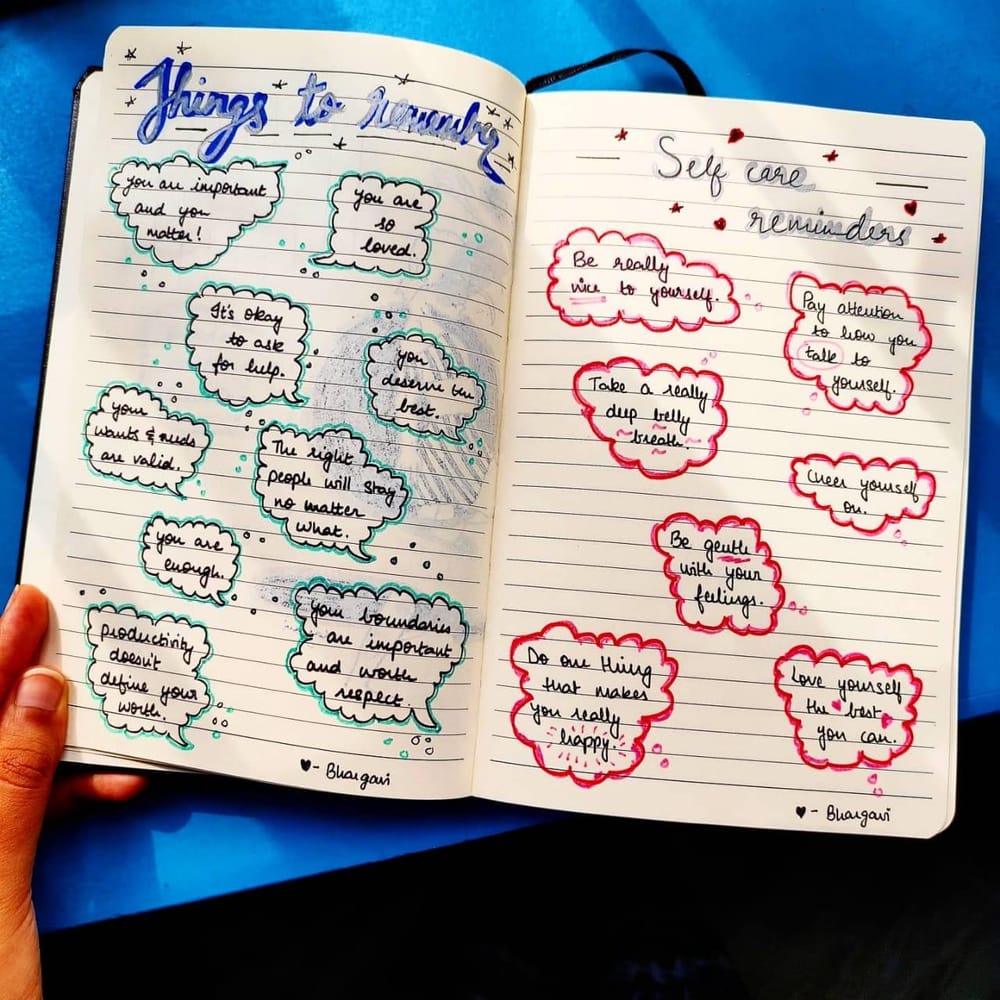 Things to remember
you are important
and you
matter!
you are
so
loved.
It's okay
to ask
for help.
you
deserve the
best.
your
wants & needs
are valid.
The right
people will stay
no matter
what.
you are
enough.
productivity
doesn't
define your
worth.
your boundaries
are important
and worth
respect.
♥- Bhargavi
Self care
reminders
Be really
nice to yourself.
Pay attention
to how you
talk to
yourself.
Take a really
deep belly
breath.
Cheer yourself
on.
Be gentle
with your
feelings.
Do one thing
that makes
you really
happy.
Love yourself
the best
you can.
♥- Bhargavi